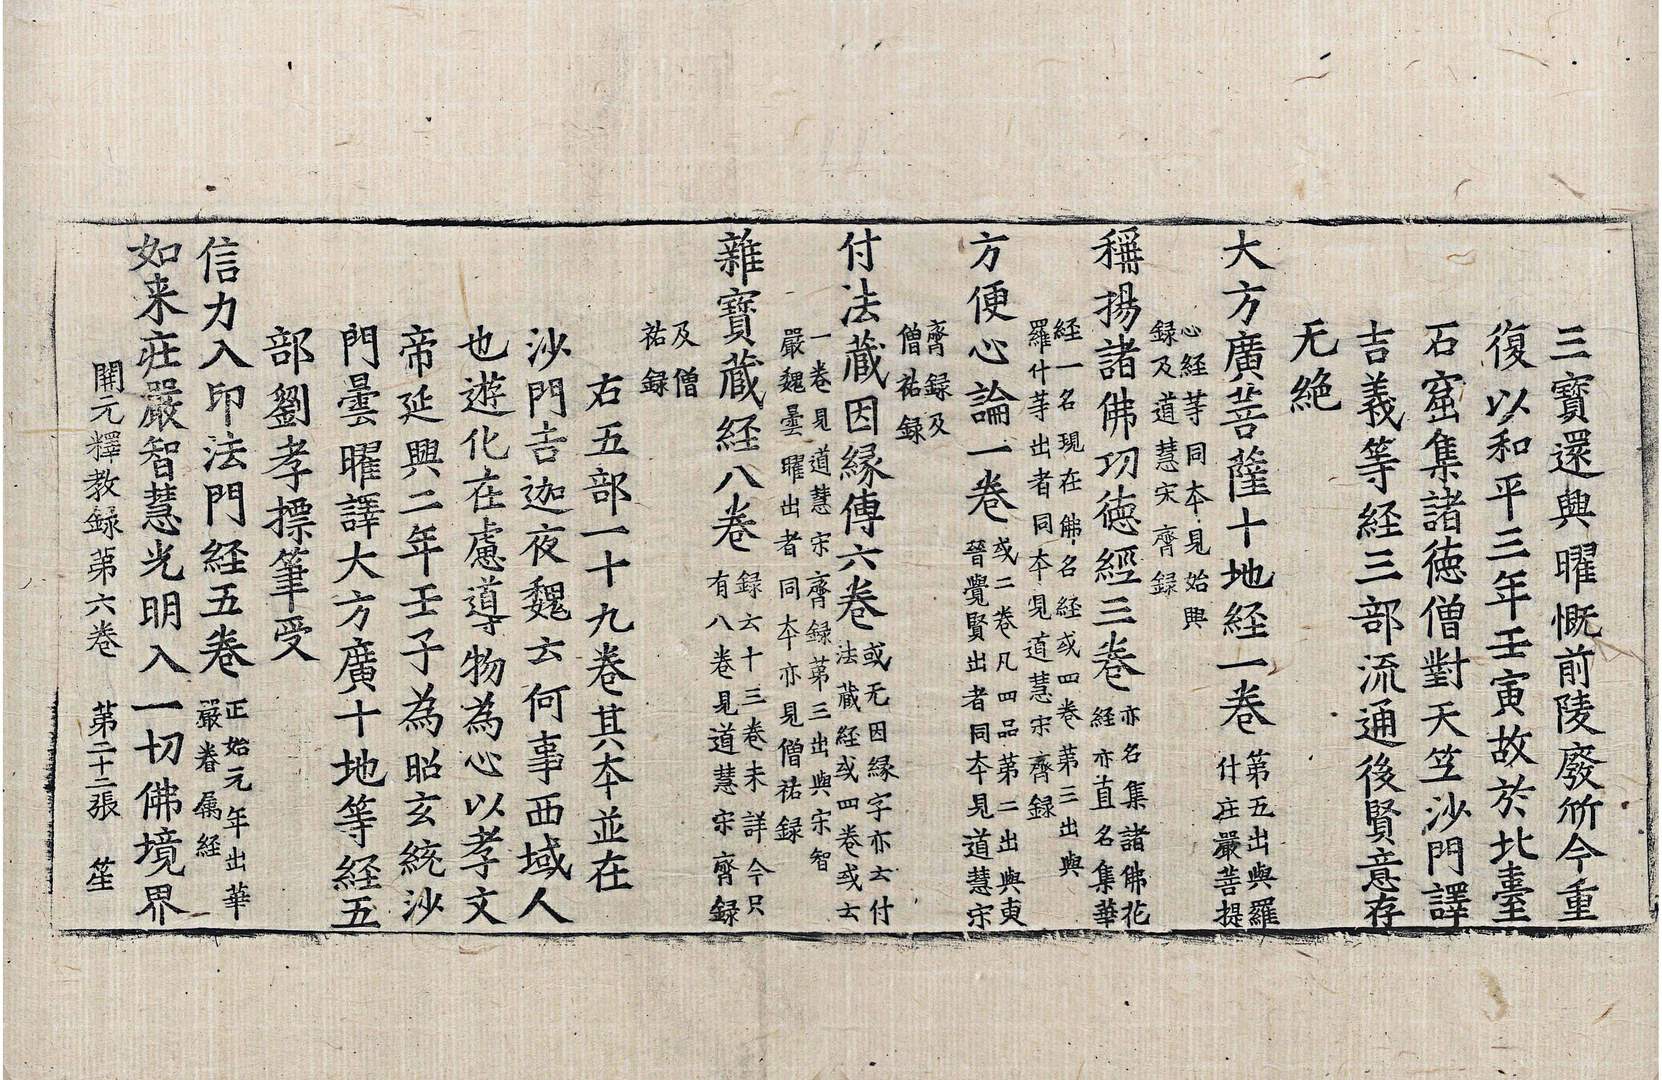 三寶還興曜慨前陵廢所今重
復以和平三年壬寅故於北臺
石窟集諸徳僧對天竺沙門譯
吉義等経三部流通後賢意存
无絶
大方廣菩薩十地経一卷
第五出與羅
什庄嚴菩提
心経等同夲見始興
録及道慧宋齊録
稱揚諸佛功徳經三卷
亦名集諸佛花
経亦直名集華
経一名現在佛名経或四卷第三出與
羅什等出者同夲見道慧宋齊録
方便心論一卷
或二卷凡四品第二出與東
晉覺賢出者同夲見道慧宋
齊録及
僧祐録
付法蔵因縁傳六卷
或无因縁字亦云付
法蔵経或四卷或云
一卷見道慧宋齊録第三出與宋智
嚴魏曇曜出者同夲亦見僧祐録
雜寶蔵経八卷
録云十三卷未詳今只
有八卷見道慧宋齊録
及僧
祐録
右五部一十九卷其夲並在
沙門吉迦夜魏云何事西域人
也遊化在慮導物為心以孝文
帝延興二年壬子為昭玄統沙
門曇曜譯大方廣十地等経五
部劉孝摽筆受
信力入印法門経五卷
正始元年出華
嚴眷属経
如来莊嚴智慧光明入一切佛境界
開元釋教録第六卷　第二十二張　笙